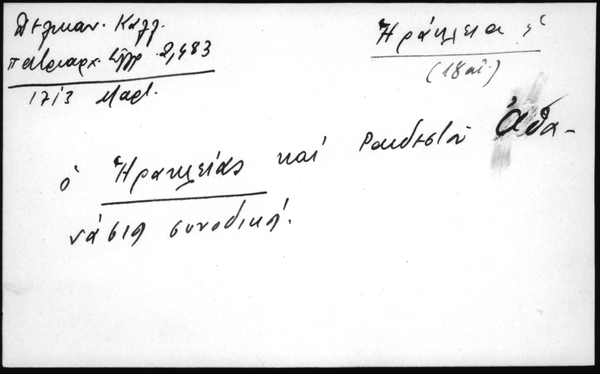 Δελικαν. Καλλ.
πατριαρχ. ἔγγρ. 2,483
1713 Μαρτ.
Ἡράκλεια ἡ
(18 αἰ.)
ὁ Ἡρακλείας καί Ραιδεστοῦ Ἀθα-
νάσιο συνοδική.